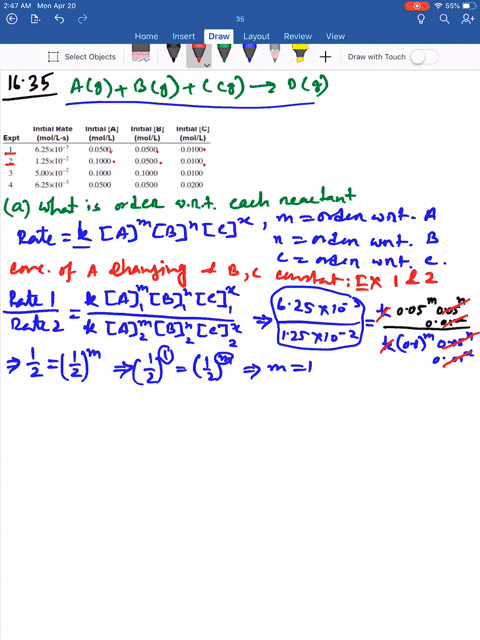 2:47 AM Mon Apr 20
55%
35
Home Insert Draw Layout Review View
Select Objects
Draw with Touch
16.35 A(g) + B(g) + C(g) → D(g)
Expt Initial Rate (mol/L·s) Initial [A] (mol/L) Initial [B] (mol/L) Initial [C] (mol/L)
1 6.25×10⁻³ 0.0500 0.0500 0.0100
2 1.25×10⁻² 0.1000 0.0500 0.0100
3 5.00×10⁻² 0.1000 0.1000 0.0100
4 6.25×10⁻³ 0.0500 0.0500 0.0200
(a) what is order w.r.t. each reactant
Rate = k [A]^m [B]^n [C]^x, m = order wrt. A
n = order wrt. B
c = order wrt. c.
conc. of A changing & B, C constant: Ex 1 & 2
Rate 1 / Rate 2 = k [A]₁^m [B]₁^n [C]₁^x / k [A]₂^m [B]₂^n [C]₂^x ⇒ 6.25×10⁻³ / 1.25×10⁻² = k 0.05^m 0.05^n 0.01^x / k (0.1)^m 0.05^n 0.01^x
⇒ 1/2 = (1/2)^m ⇒ (1/2)^1 = (1/2)^m ⇒ m = 1